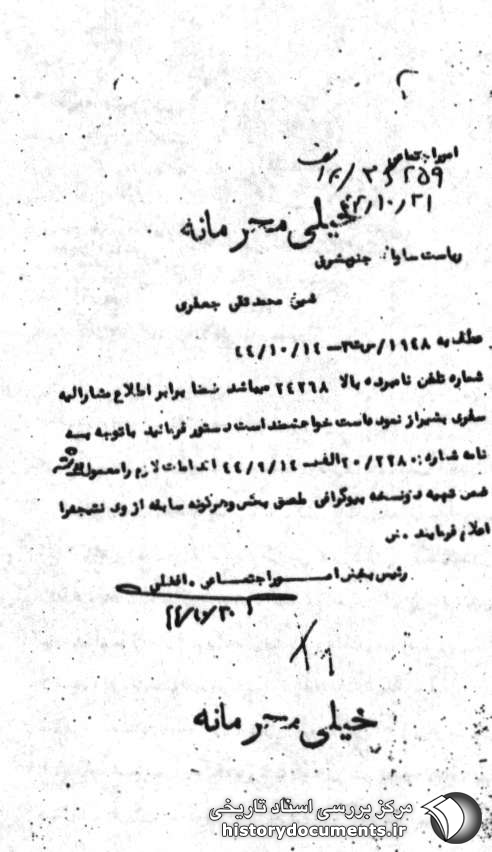 امور اجتماعی
خیلی محرمانه
ریاست ساواک جنوبشرق
شیخ محمد تقی جعفری
عطف به ۱۹۴۸/س ت۳ـ ۴۴/۱۰/۱۴
شماره تلفن نامبرده بالا ۲۴۲۶۸ میباشد ضمنا برابر اطلاع مشارالیه
سفری بشیراز نموده است خواهشمند است دستور فرمائید باتوجه بسه
نامه شماره: ۲۰/۲۲۸۰ الف ـ ۴۴/۹/۱۴ اقدامات لازم را معمول
ضمن تهیه دونسخه بیوگرافی ملصق بعکس وهرگونه سابقه از وی نتیجه را
اعلام فرمایند .
رئیس بخش امــور اجتماعی . افضلی
خیلی محرمانه
مرکز بررسی اسناد تاریخی
historydocuments.ir